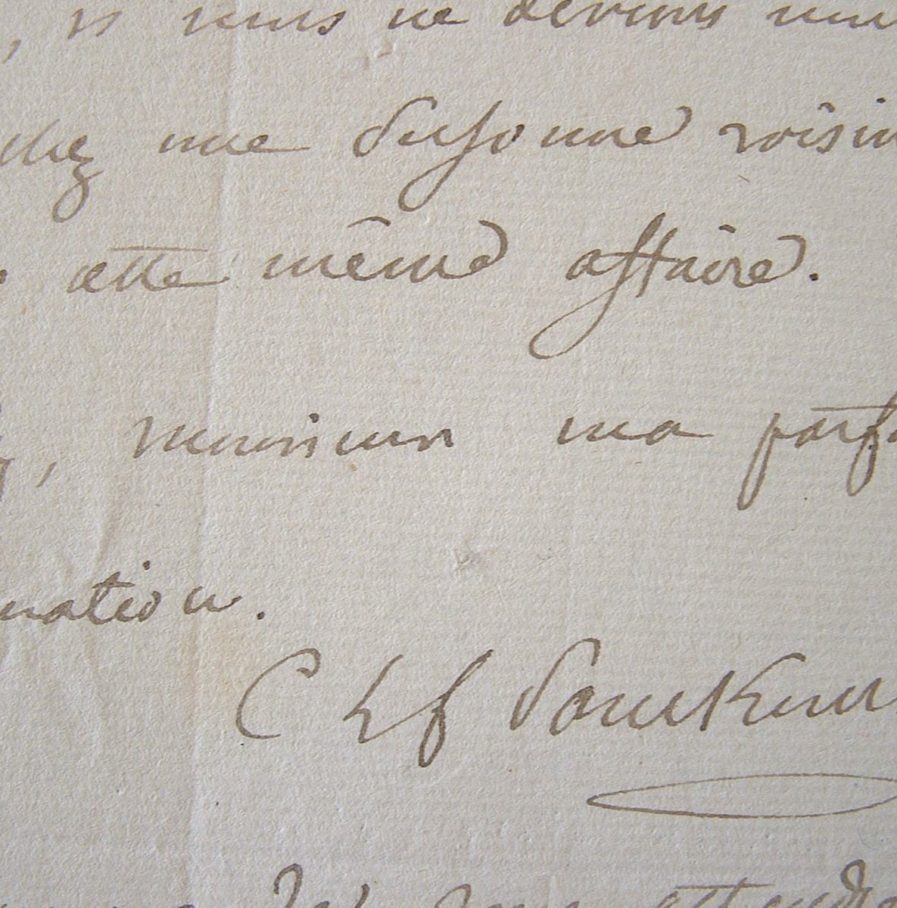 , si nous ne devions
chez une personne voisin
cette même affaire.
, monsieur ma parfa
mation.
C L f Panckou